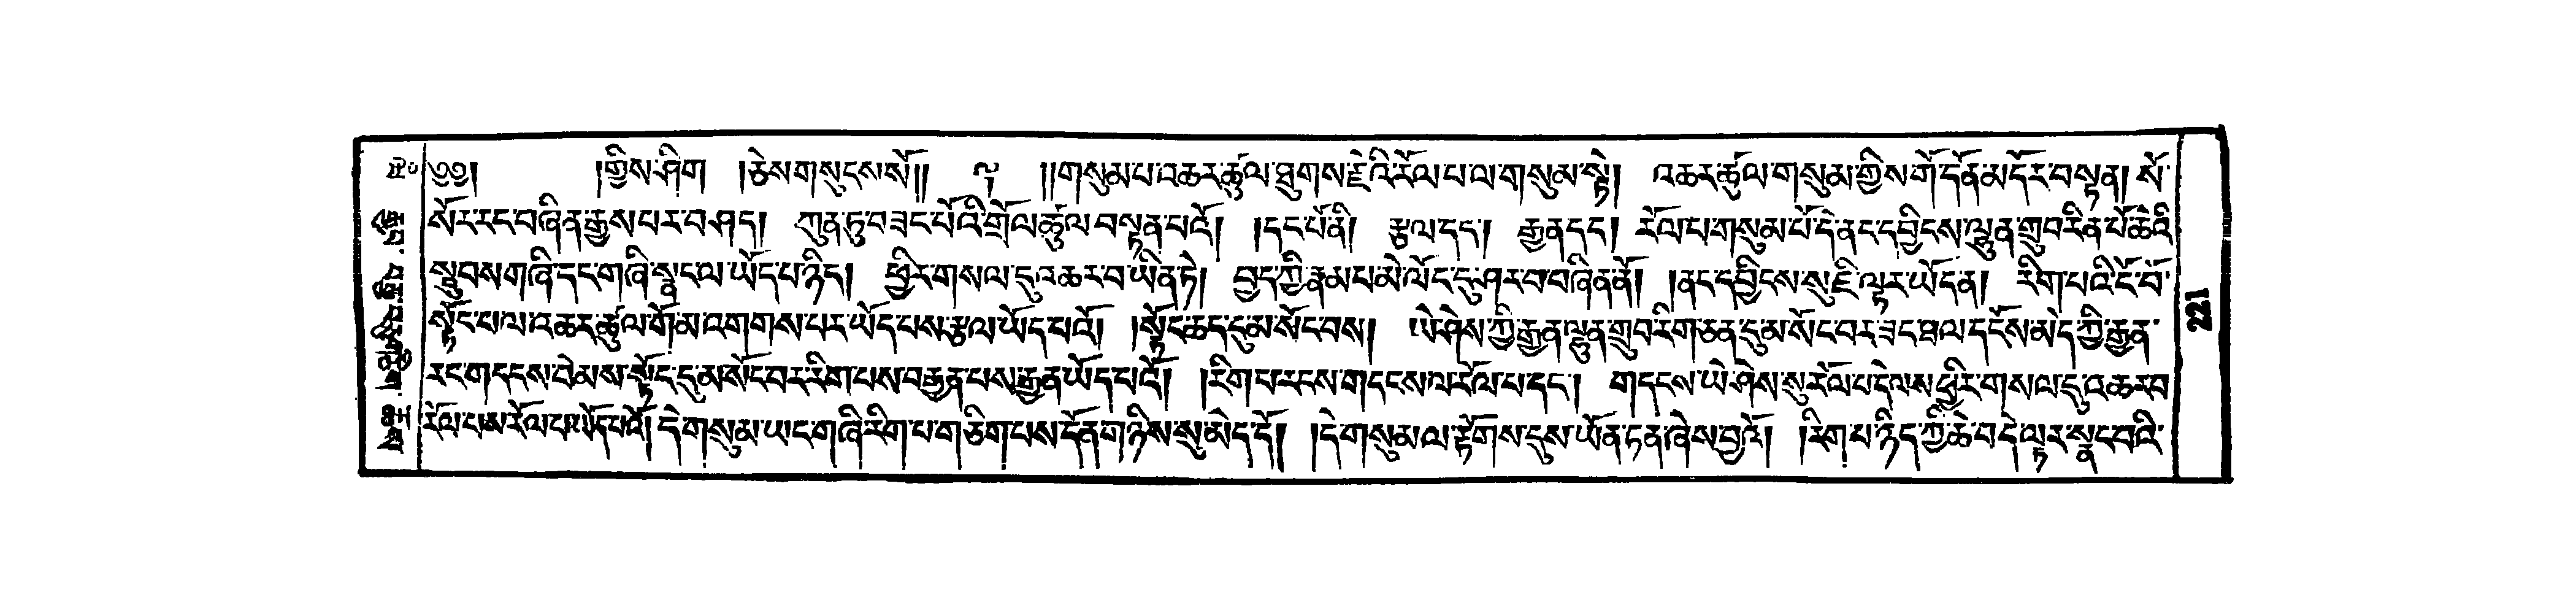 ༄༅། །གྱིས་ཤིག །ཅེས་གསུངས་སོ།། ༈ །།གསུམ་པ་འཆར་ཚུལ་ཐུགས་རྗེ་འི་རོལ་པ་ལ་གསུམ་སྟེ། འཆར་ཚུལ་གསུམ་གྱིས་གོ་དོན་མདོར་བསྟན། སོ་
སོར་རང་བཞིན་རྒྱས་པར་བཤད། ཀུན་ཏུ་བཟང་པོའི་གྲོལ་ཚུལ་བསྟན་པའོ། །དང་པོ་ནི། རྩལ་དང་། རྒྱན་དང་། རོལ་པ་གསུམ་པོ་དེ་ནང་དབྱིངས་ལྷུན་གྲུབ་རིན་པོ་ཆེའི་
སྦུབས་གཞི་དང་གཞི་སྣང་ལ་ཡོད་པ་ཉིད། ཕྱིར་གསལ་དུ་འཆར་བ་ཡིན་ཏེ། བྱད་ཀྱི་རྣམ་པ་མེ་ལོང་དུ་ཤར་བ་བཞིན་ནོ། །ནང་དབྱིངས་སུ་ཇི་ལྟར་ཡོད་ན། རིག་པའི་ངོ་བོ་
སྟོང་པ་ལ་འཆར་ཚུལ་གོ་མ་འགགས་པར་ཡོད་པས་རྩལ་ཡོད་པའོ། །སྟོང་ཆད་དུ་མ་སོང་བས། ཡེ་ཤེས་ཀྱི་རྒྱན་ལྷུན་གྲུབ་རིག་ཅན་དུ་མ་སོང་བར་ཟང་ཐལ་དངོས་མེད་ཀྱི་རྒྱན་
རང་གདངས་བེམས་སྟོང་དུ་མ་སོང་བར་རིག་པས་བརྒྱན་པས་རྒྱན་ཡོད་པའོ། །རིག་པ་རང་ས་གདངས་ལ་རོལ་པ་དང་། གདངས་ཡེ་ཤེས་སུ་རོལ་པ་དེ་ལས་ཕྱིར་གསལ་དུ་འཆར་བ
རོལ་པས་རོལ་པ་ཡོད་པའོ། དེ་གསུམ་ཡང་གཞི་རིག་པ་གཅིག་པས་དོན་གཉིས་སུ་མེད་དོ། །དེ་གསུམ་ལ་རྫོགས་དུས་ཡོན་ཏན་ཞེས་བྱའོ། །རིག་པ་ཉིད་ཀྱི་ཆེ་བ་དེ་ལྟར་སྣང་བའི་